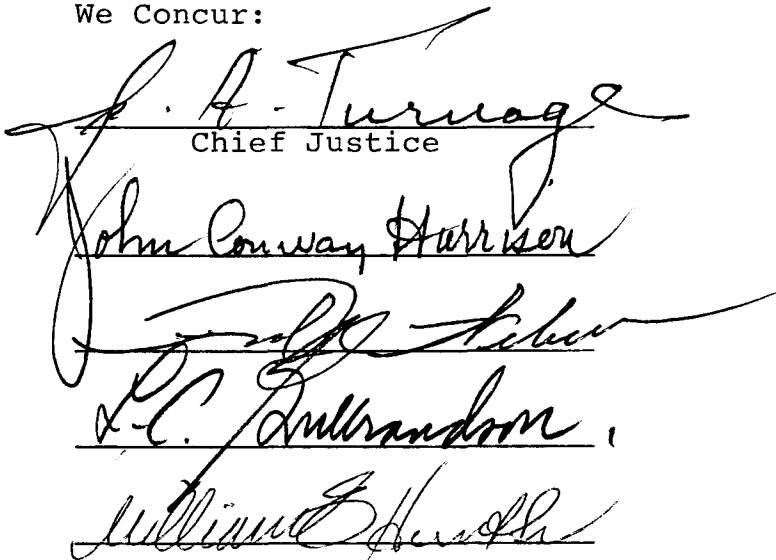 We Concur:
J. A. Turnage
Chief Justice
John Conway Harrison
L. C. Gulbrandson
William E. Hunt